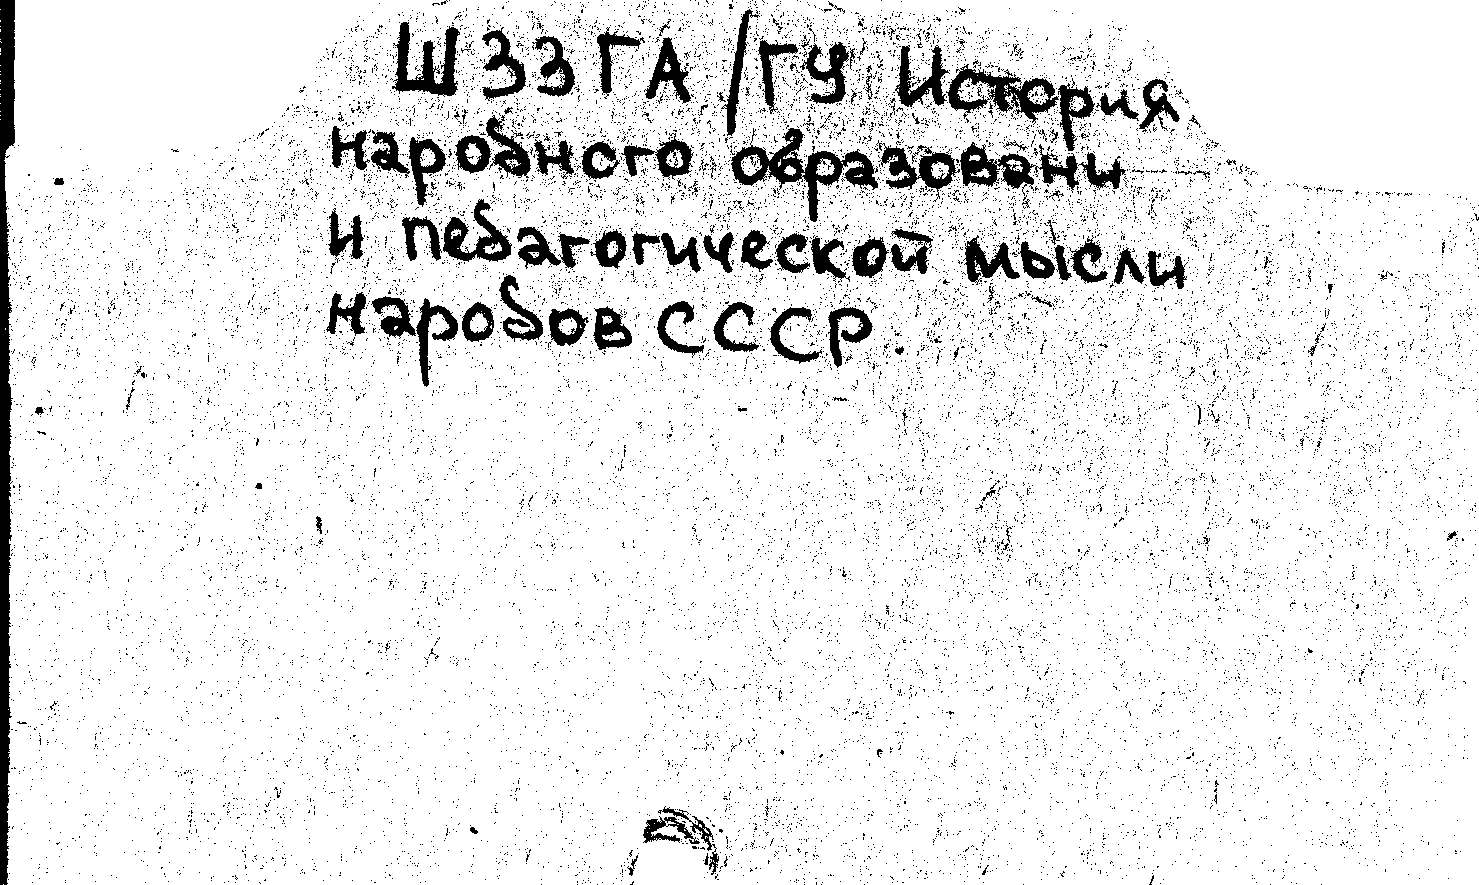 Ш33ГА/ГУ История
народного образовани
и педагогической мысли
народов СССР.